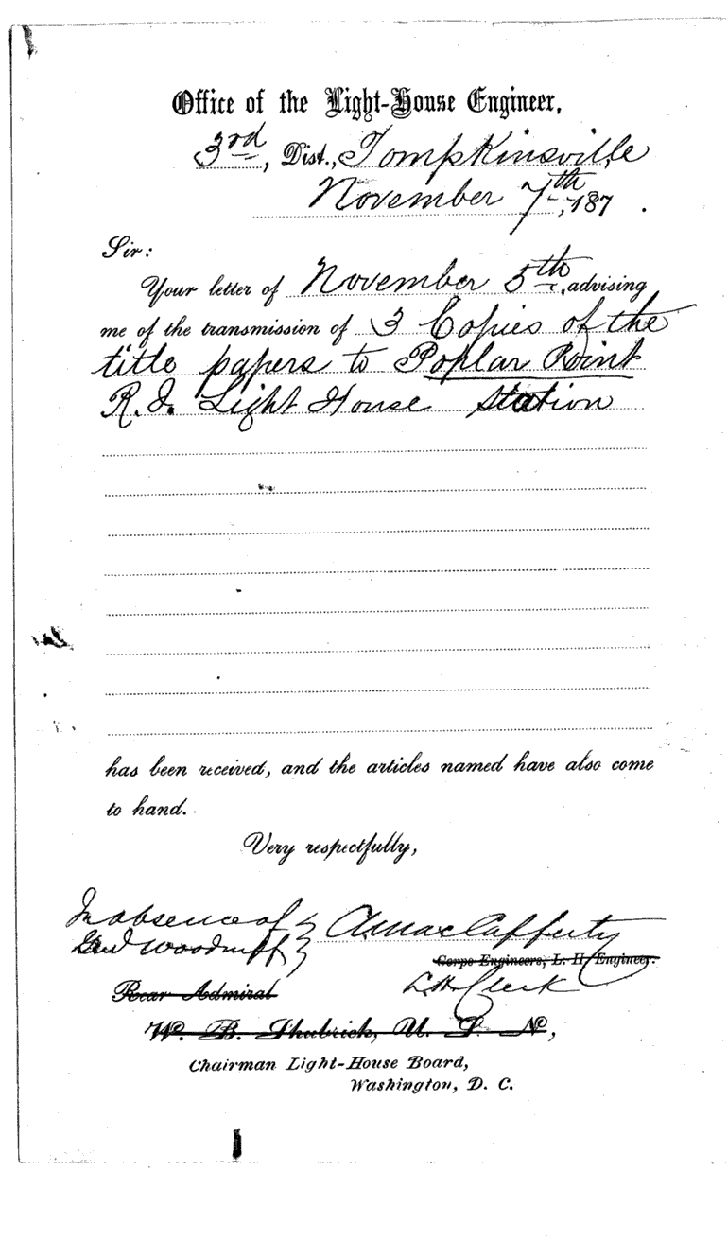 Office of the Light-House Engineer,
3rd, Dist., Tompkinsville
November 7th, 187 .
Sir:
Your letter of November 5th, advising
me of the transmission of 3 Copies of the
title papers to Poplar Point
R.I. Light House Station
has been received, and the articles named have also come
to hand.
Very respectfully,
In absence of } A MacCafferty
Genl Woodruff }
Corps Engineers, L. H. Engineer.
Rear Admiral L.H. Clerk
W. B. Shubrick, U. S. N.,
Chairman Light-House Board,
Washington, D. C.